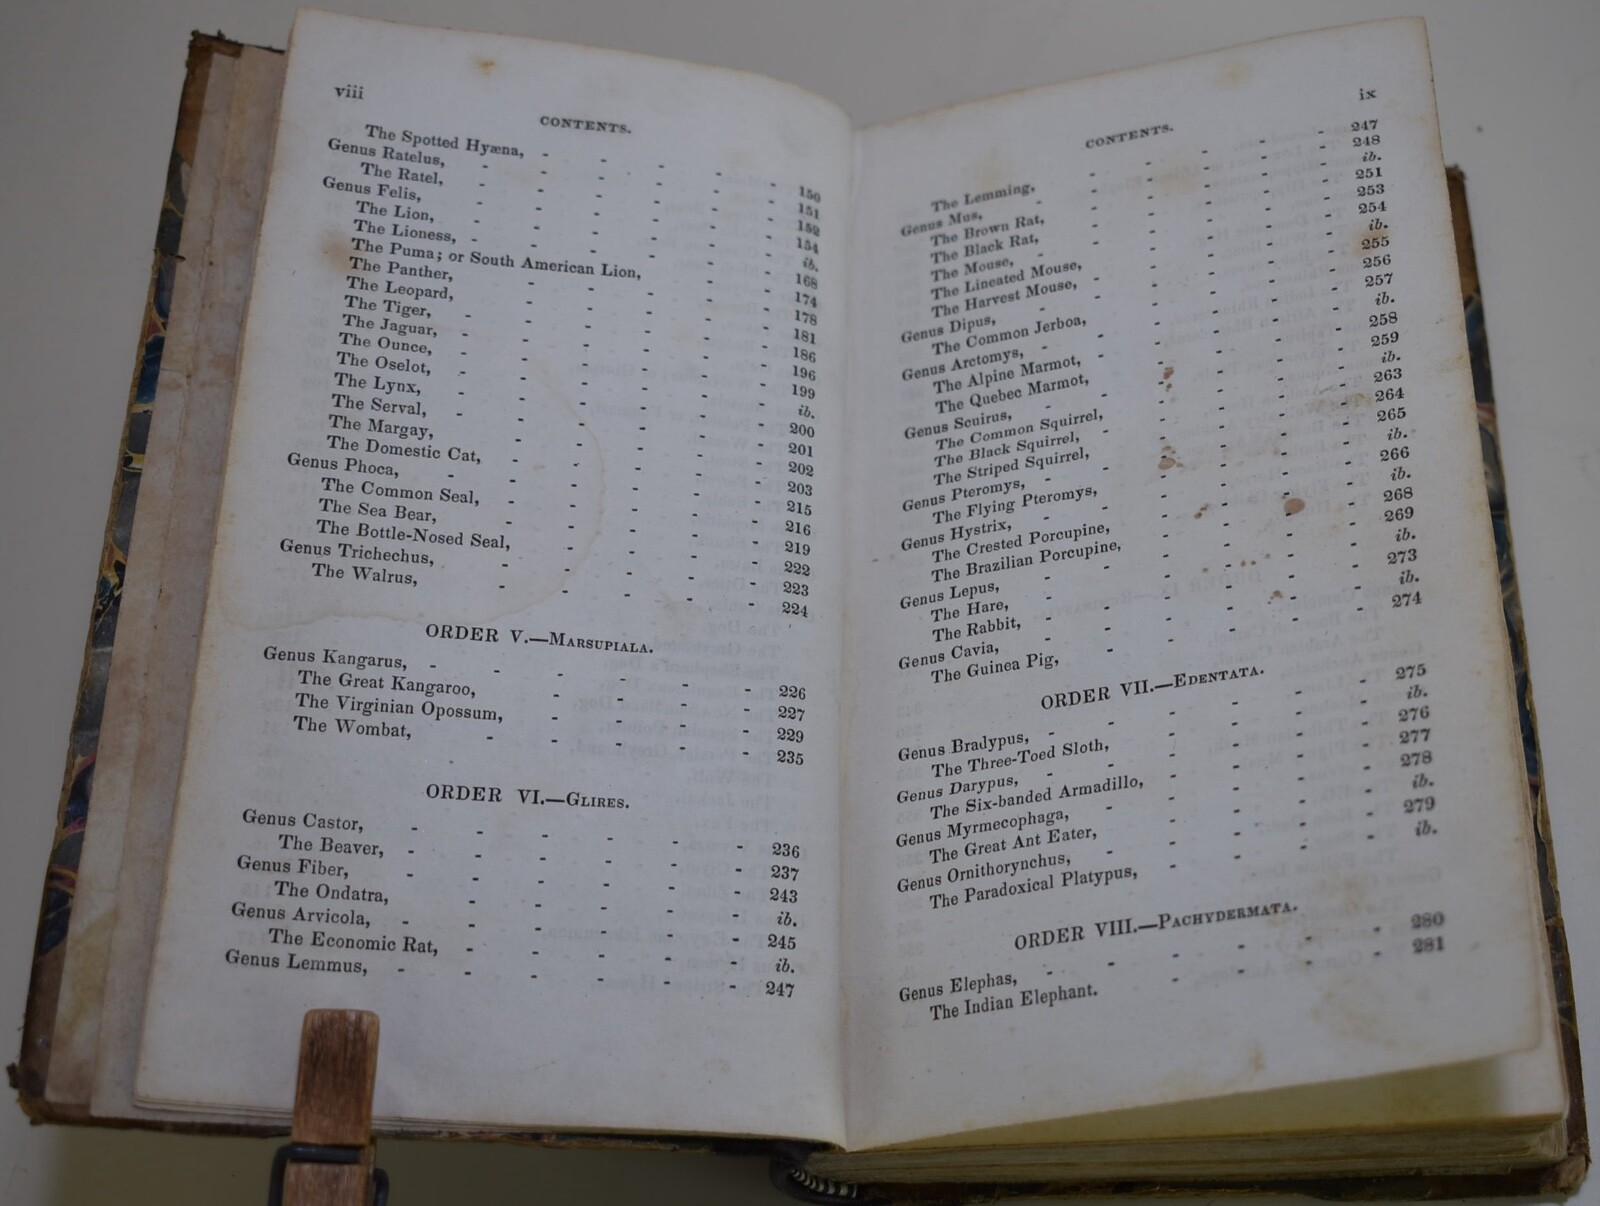 viii
CONTENTS.
The Spotted Hyæna, - - - - - 150
Genus Ratelus, - - - - - - 151
The Ratel, - - - - - - 152
Genus Felis, - - - - - - 154
The Lion, - - - - - - ib.
The Lioness, - - - - - - 168
The Puma; or South American Lion, - - - 174
The Panther, - - - - - 178
The Leopard, - - - - - - 181
The Tiger, - - - - - - 186
The Jaguar, - - - - - - 196
The Ounce, - - - - - - 199
The Oselot, - - - - - - ib.
The Lynx, - - - - - - 200
The Serval, - - - - - - 201
The Margay, - - - - - 202
The Domestic Cat, - - - - - 203
Genus Phoca, - - - - - - 215
The Common Seal, - - - - - 216
The Sea Bear, - - - - - 219
The Bottle-Nosed Seal, - - - - 222
Genus Trichechus, - - - - - 223
The Walrus, - - - - - 224
ORDER V.—MARSUPIALA.
Genus Kangarus, - - - - - - 226
The Great Kangaroo, - - - - 227
The Virginian Opossum, - - - - 229
The Wombat, - - - - - 235
ORDER VI.—GLIRES.
Genus Castor, - - - - - - 236
The Beaver, - - - - - - 237
Genus Fiber, - - - - - - 243
The Ondatra, - - - - - ib.
Genus Arvicola, - - - - - - 245
The Economic Rat, - - - - - ib.
Genus Lemmus, - - - - - - 247
ix
CONTENTS.
The Lemming, - - - - - 247
Genus Mus, - - - - - - 248
The Brown Rat, - - - - - ib.
The Black Rat, - - - - - 251
The Mouse, - - - - - - 253
The Lineated Mouse, - - - - - 254
The Harvest Mouse, - - - - - ib.
Genus Dipus, - - - - - - 255
The Common Jerboa, - - - - 256
Genus Arctomys, - - - - - - 257
The Alpine Marmot, - - - - - ib.
The Quebec Marmot, - - - - 258
Genus Scuirus, - - - - - - 259
The Common Squirrel, - - - - ib.
The Black Squirrel, - - - - - 263
The Striped Squirrel, - - - - - 264
Genus Pteromys, - - - - - - 265
The Flying Pteromys, - - - - ib.
Genus Hystrix, - - - - - - 266
The Crested Porcupine, - - - - ib.
The Brazilian Porcupine, - - - - 268
Genus Lepus, - - - - - - 269
The Hare, - - - - - - ib.
The Rabbit, - - - - - - 273
Genus Cavia, - - - - - - ib.
The Guinea Pig, - - - - - 274
ORDER VII.—EDENTATA.
Genus Bradypus, - - - - - - 275
The Three-Toed Sloth, - - - - ib.
Genus Darypus, - - - - - - 276
The Six-banded Armadillo, - - - - 277
Genus Myrmecophaga, - - - - - 278
The Great Ant Eater, - - - - - ib.
Genus Ornithorynchus, - - - - - 279
The Paradoxical Platypus, - - - - ib.
ORDER VIII.—PACHYDERMATA.
Genus Elephas, - - - - - - 280
The Indian Elephant. - - - - 281